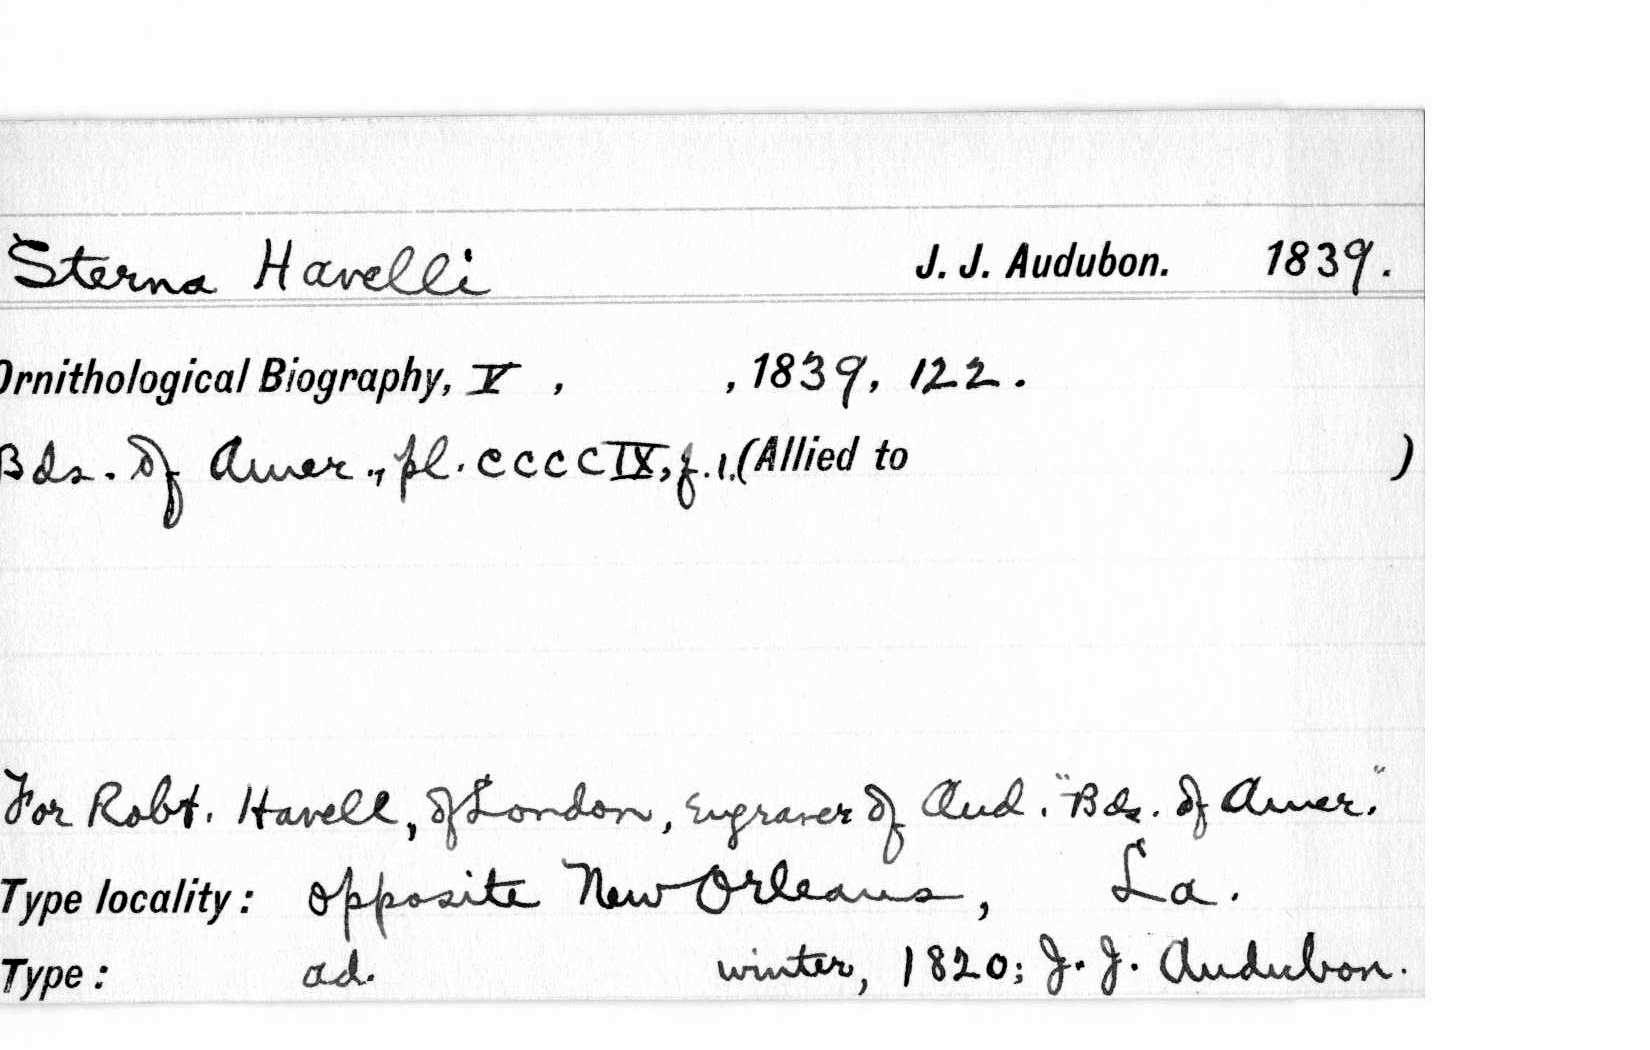 Sterna Havelli J. J. Audubon. 1839.
Ornithological Biography, V , , 1839, 122.
Bds. of Amer., pl. CCCCIX, f. 1. (Allied to )
For Robt. Havell, of London, Engraver of Aud. "Bds. of Amer."
Type locality: opposite New Orleans, La.
Type: ad. winter, 1820; J. J. Audubon.